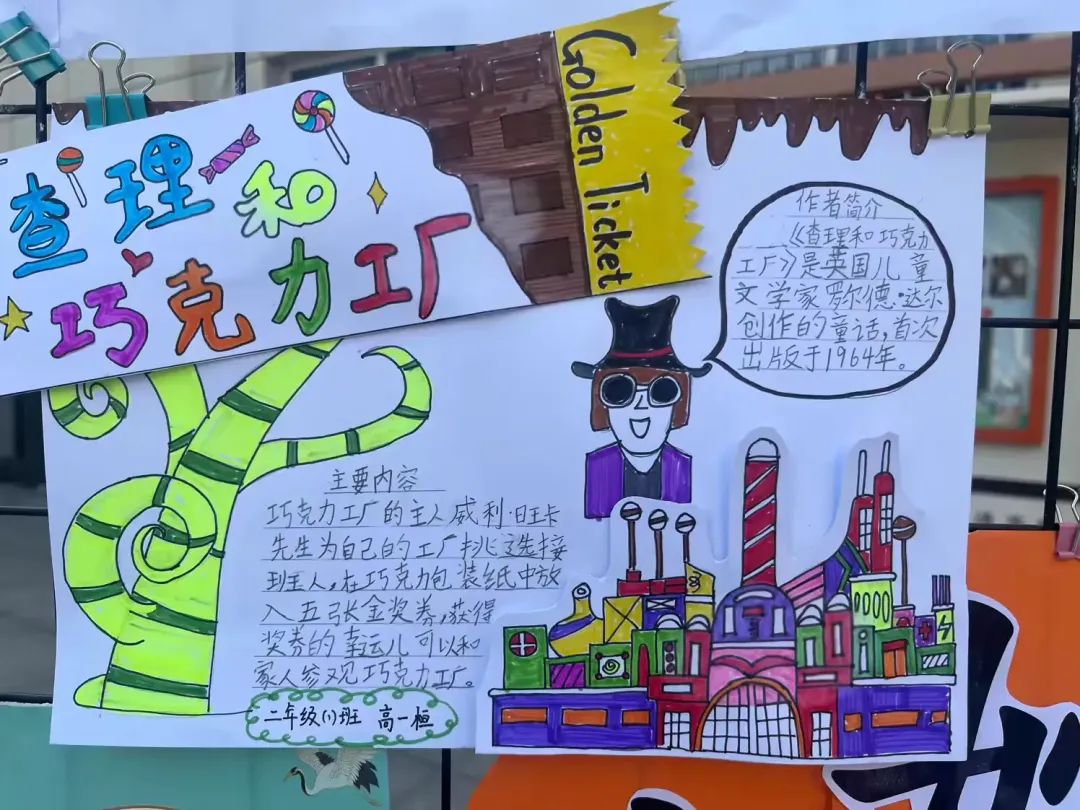 Golden Ticket
查理和
巧克力工厂
作者简介
《查理和巧克力
工厂》是英国儿童
文学家罗尔德·达尔
创作的童话,首次
出版于1964年。
主要内容
巧克力工厂的主人威利·旺卡
先生为自己的工厂挑选接
班人,在巧克力包装纸中放
入五张金奖券,获得
奖券的幸运儿可以和
家人参观巧克力工厂。
二年级(1)班 高一桓